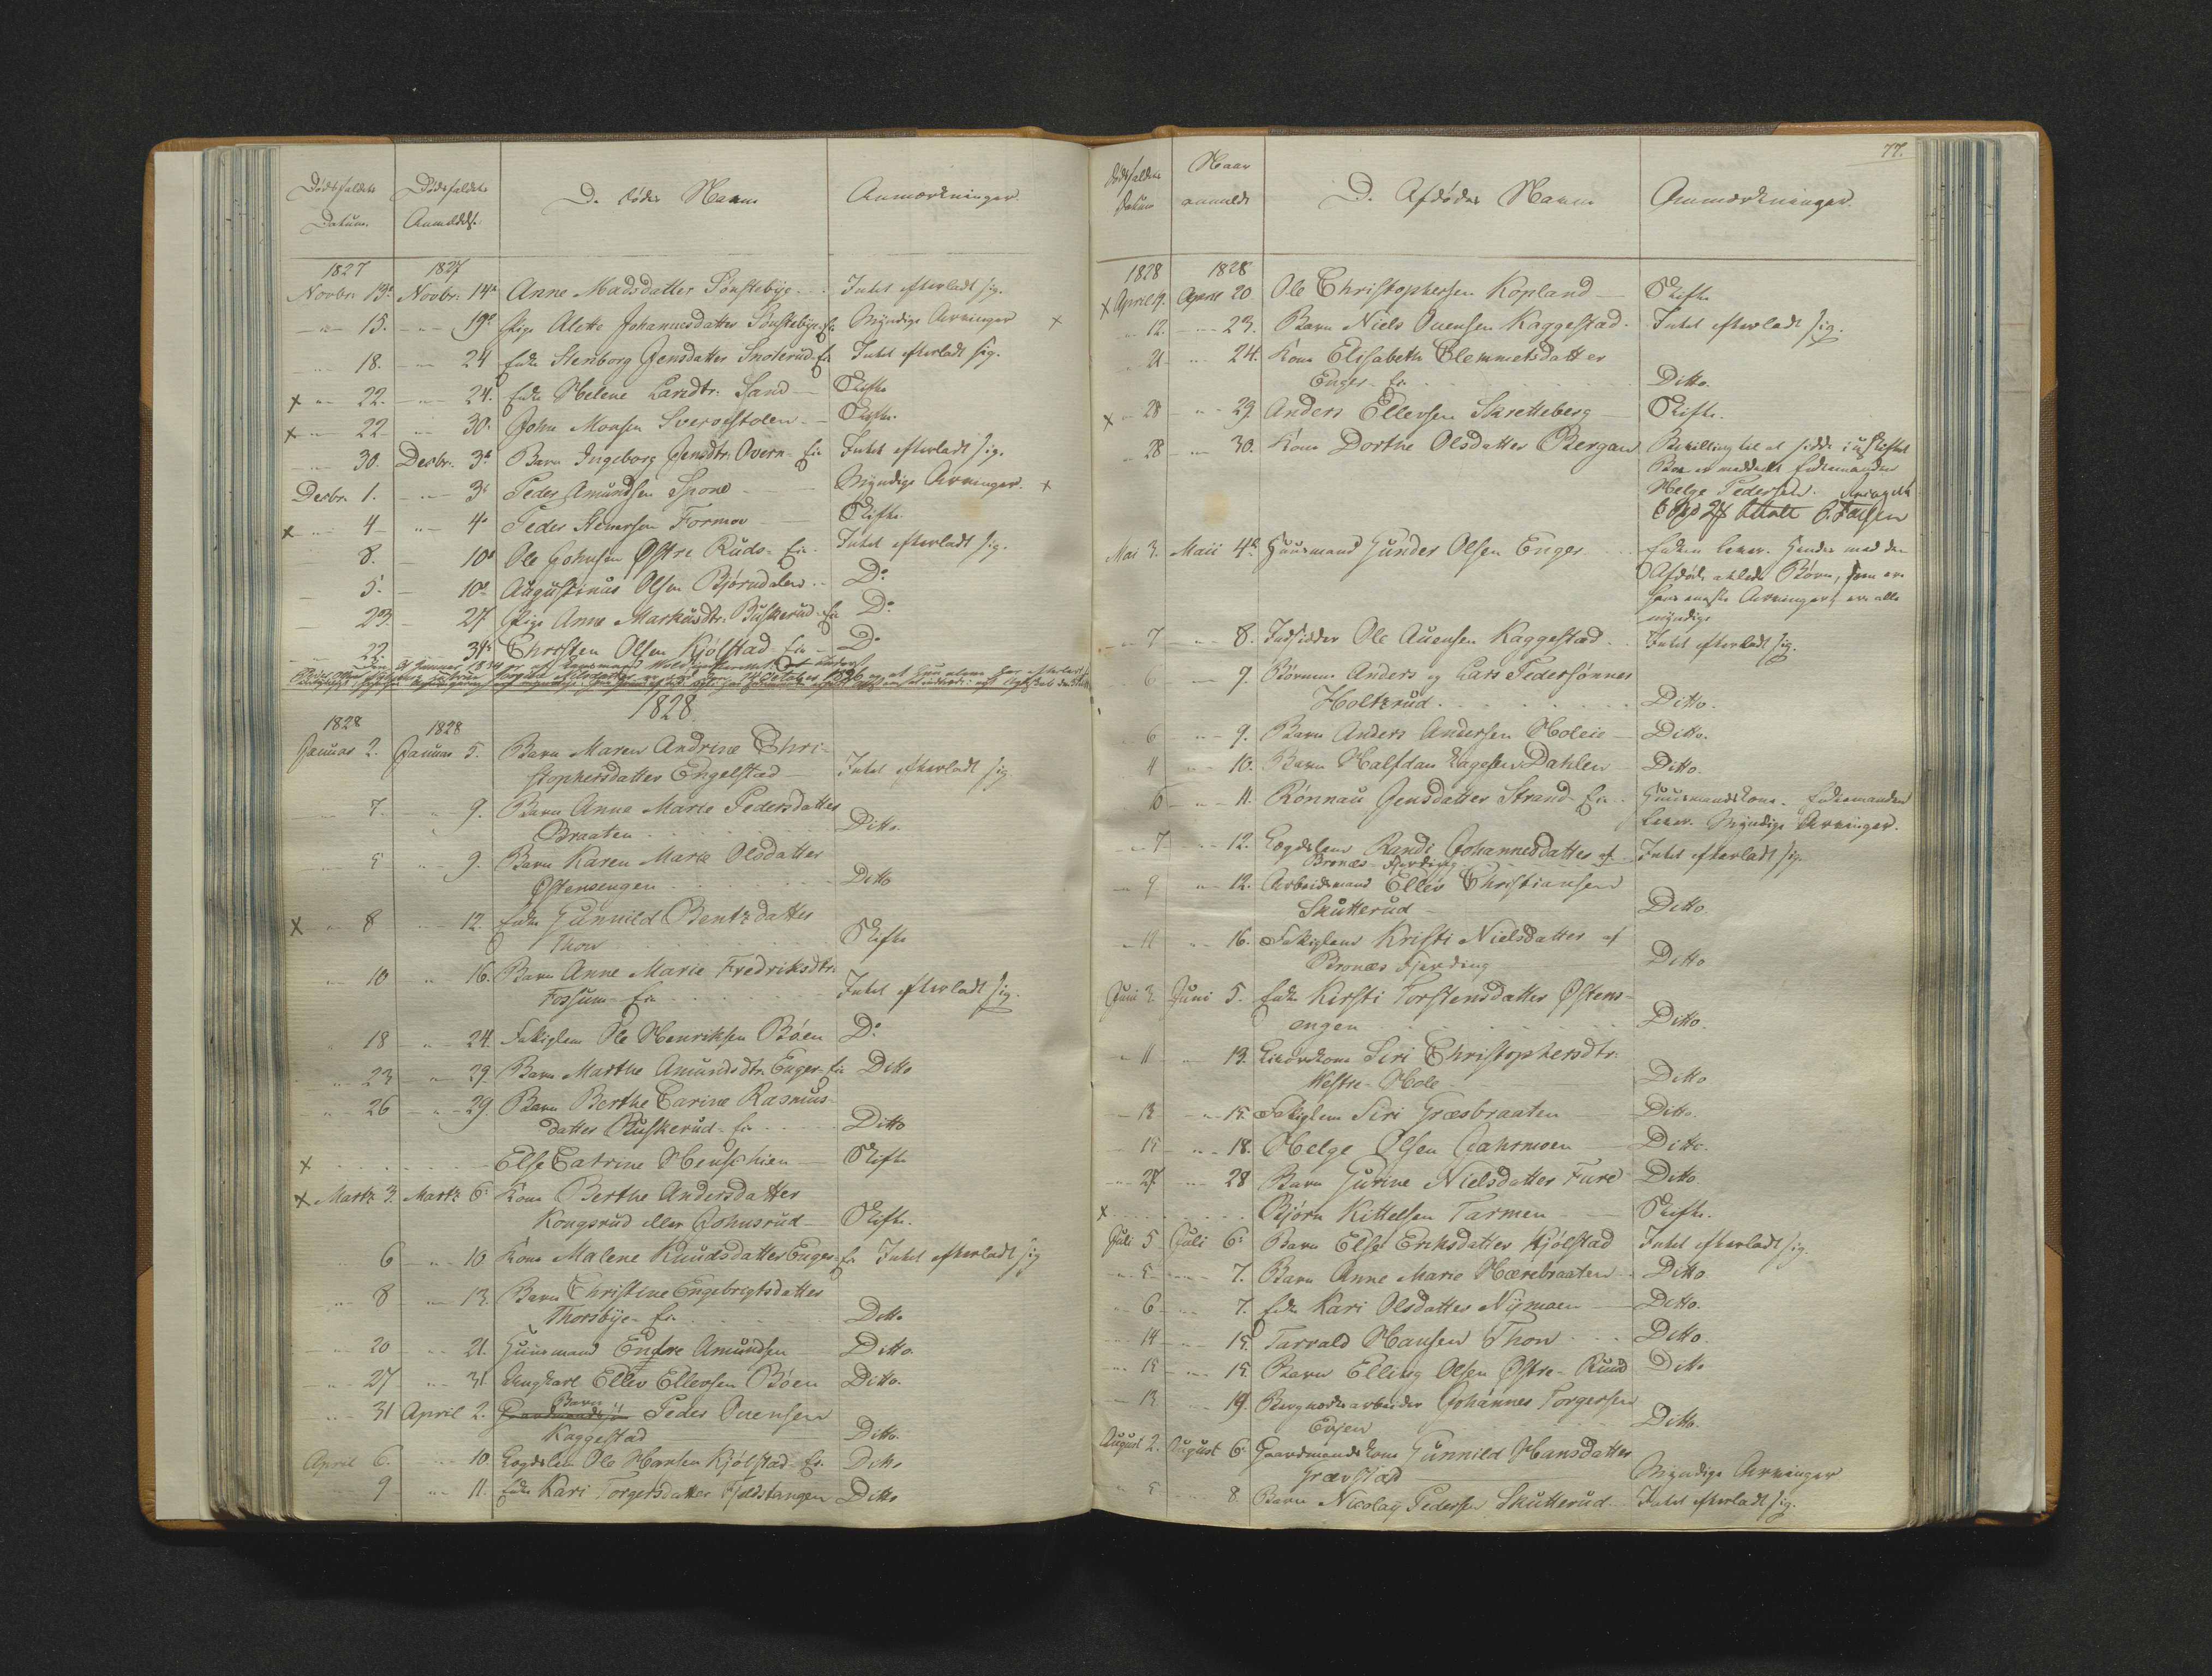 Dødsfaldets Datum. Dødsfaldets Anmeldelse. D. Dødes Navne Anmærkninger.
1827 1827
Novbr. 13d Novbr. 14d Anne Madsdatter Sønstebye Intet efterladt sig.
15. 19d Pige Alette Johannesdatter Sønstebye-Eie Myndige Arvinger x
18. 24 Enke Stenborg Jensdatter Snoterud-Eie Intet efterladt sig.
x 22. 24. Enke Helene Larsdtr. Sand Skifte
x 22 30. John Monsen Sverestolen Skifte.
30. Decbr. 3d Barn Ingeborg Jensdtr. Overn-Eie Intet efterladt sig.
Decbr. 1. 3d Peder Amundsen Spone Myndige Arvinger. x
x 4 4d Peder Steensen Formoe Skifte
8. 10d Ole Johnsen Østre Ruds-Eie Intet efterladt sig.
5. 10d Augustinus Olsen Bjørndalen Do
23. 27 Pige Anne Markusdtr. Buskerud-Eie Do
22. 31te Christen Olsen Kjølstad-Eie Do
1828
1828 1828
Januar 2. Januar 5. Barn Maren Andrine Chri-
stophersdatter Engelstad Intet efterladt sig
7. 9. Barn Anne Marie Pedersdatter
Braaten Ditto.
5 9. Barn Karen Marie Olsdatter
Østensengen Ditto
x 8 12. Enke Gunnild Bentsdatter
Thon Skifte
10 16. Barn Anne Marie Fredriksdtr.
Fossum-Eie Intet efterladt sig.
18 24. Fattiglem Ole Henriksen Bøen Do
23 29. Barn Marthe Amundsdtr. Enger-Eie Ditto
26 29. Barn Berthe Carine Rasmus-
datter Buskerud-Eie Ditto
x Else Catrine Henschien Skifte
x Marts 3. Marts 6. Kone Berthe Andersdatter
Kongsrud eller Johnsrud Skifte.
6 10 Kone Malene Knudsdatter Enger-Eie Intet efterladt sig
8 13. Barn Christine Engebrigtsdatter
Thorsbye-Eie Ditto
20 21. Huusmand Endre Amundsen Ditto.
27 31. Ungkarl Ellev Ellevsen Bøen Ditto.
31 April 2. Barn Peder Ouensen
Kaggestad Ditto.
April 6. 10. Lægdslem Ole Hansen Kjølstad-Eie Ditto
9 11. Enke Kari Torgersdatter Fjeldstangen Ditto
77.
Dødsfaldets Datum Naar anmeldt D. Afdødes Navne Anmærkninger.
1828 1828
x April 19. April 20 Ole Christophersen Kopland Skifte
12. 23. Barn Niels Ouensen Kaggestad. Intet efterladt sig.
21 24. Kone Elisabeth Clemmetsdatter
Enger-Eie Ditto.
x 28 29. Anders Ellevsen Skretteberg Skifte.
28 30. Kone Dorthe Olsdatter Bergan Bevilling til at sidde i uskiftet
Boe er meddeelt Enkemanden
Helge Pedersen.
Mai 3. Maii 4d Huusmand Gunder Olsen Enger Enken lever. Hendes med den
Afdøde avlede Børn, som ere
hans eneste Arvinger, ere alle
myndige
7 8. Indsidder Ole Auensen Kaggestad Intet efterladt sig.
6 9. Børnene Anders og Lars Pedersønner
Holterud Ditto.
6 9. Barn Anders Andersen Moleie Ditto.
4 10. Barn Halfdan Aagesen Dahlen Ditto.
6 11. Rønnau Jensdatter Strand-Eie Huusmandskone. Enkemanden
lever. Myndige Arvinger.
7 12. Lægdslem Randi Johannesdatter af
Bronæs Fjerding Intet efterladt sig.
9 12. Arbeidsmand Ellev Christiansen
Skutterud Ditto.
11 16. Fattiglem Kristi Nielsdatter af
Bronæs Fjerding Ditto
Juni 3. Juni 5. Enke Kirsti Torstensdatter Østens-
engen Ditto.
11 13. Siri Christophersdtr.
Vestre-Hole Ditto
13 15. Fattiglem Siri Græsbraaten Ditto.
15 18. Helge Olsen Aahrmoen Ditto.
27 28 Barn Gurine Nielsdatter Fure Ditto
x Bjørn Kittelsen Tarmen Skifte.
Juli 5 Juli 6. Barn Else Eriksdatter Kjølstad Intet efterladt sig.
5 7. Barn Anne Marie Hærebraaten Ditto.
6 7. Enke Kari Olsdatter Nymoen Ditto.
14 15. Tarvald Hansen Thon Ditto.
15 15. Barn Elling Olsen Østre-Ruud Ditto
13 19. Bergværksarbeider Johannes Torgersen
Evjen Ditto.
August 2. August 6. Gaardmandskone Gunnild Hansdatter
Grævstad Myndige Arvinger
5 8. Barn Nicolay Pedersen Skutterud Intet efterladt sig.